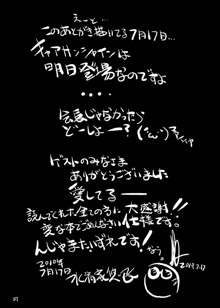 えーと…
このあとがき描いてる7月17日…
キュアサンシャインは
明日登場なのですよ
・・・・
会長じゃなかったら
どーしょー?
ゲストのみなさま
ありがとうございました
愛してるー
読んでくれた全ての方に大感謝
変な本でごめんなさい仕様です!
んじゃまたいずれです!
2010年
7月17日